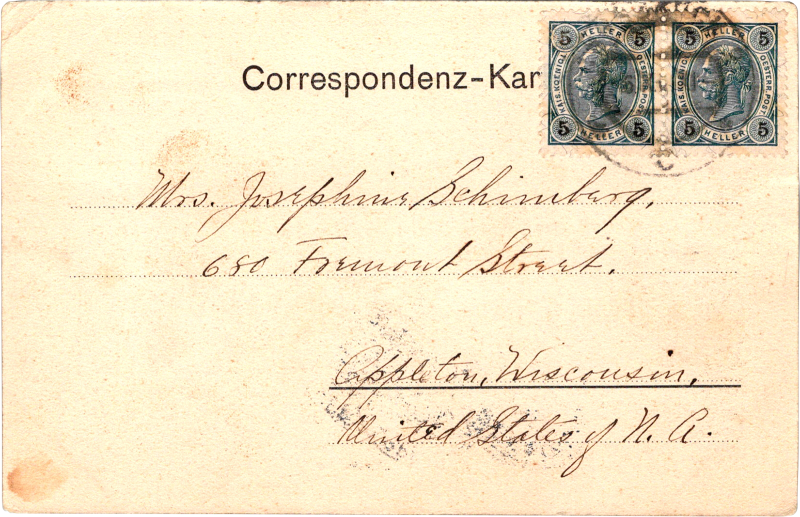 Correspondenz-Kar
5 HELLER 5
KAIS. KOENIGL. OESTERR. POST.
5 HELLER 5
5 HELLER 5
KAIS. KOENIGL. OESTERR. POST.
5 HELLER 5
Mrs. Josephine Schimberg,
680 Fremont Street.
Appleton, Wisconsin,
United States of N. A.